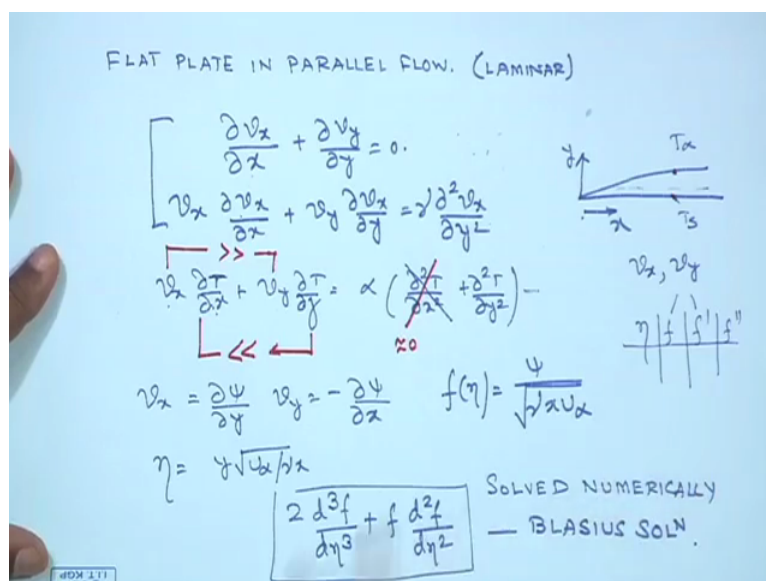 FLAT PLATE IN PARALLEL FLOW. (LAMINAR)
∂vx/∂x + ∂vy/∂y = 0.
vx ∂vx/∂x + vy ∂vx/∂y = ν ∂²vx/∂y²
>>
vx ∂T/∂x + vy ∂T/∂y = α ( ∂²T/∂x² + ∂²T/∂y² ) —
<<
≈0
y
Tα
x
Ts
vx, vy
η | f | f' | f''
vx = ∂ψ/∂y vy = - ∂ψ/∂x f(η) = ψ/√νxUα
η = y√Uα/νx
2 d³f/dη³ + f d²f/dη²
SOLVED NUMERICALLY
— BLASIUS SOLN.
I.I.T. KGP